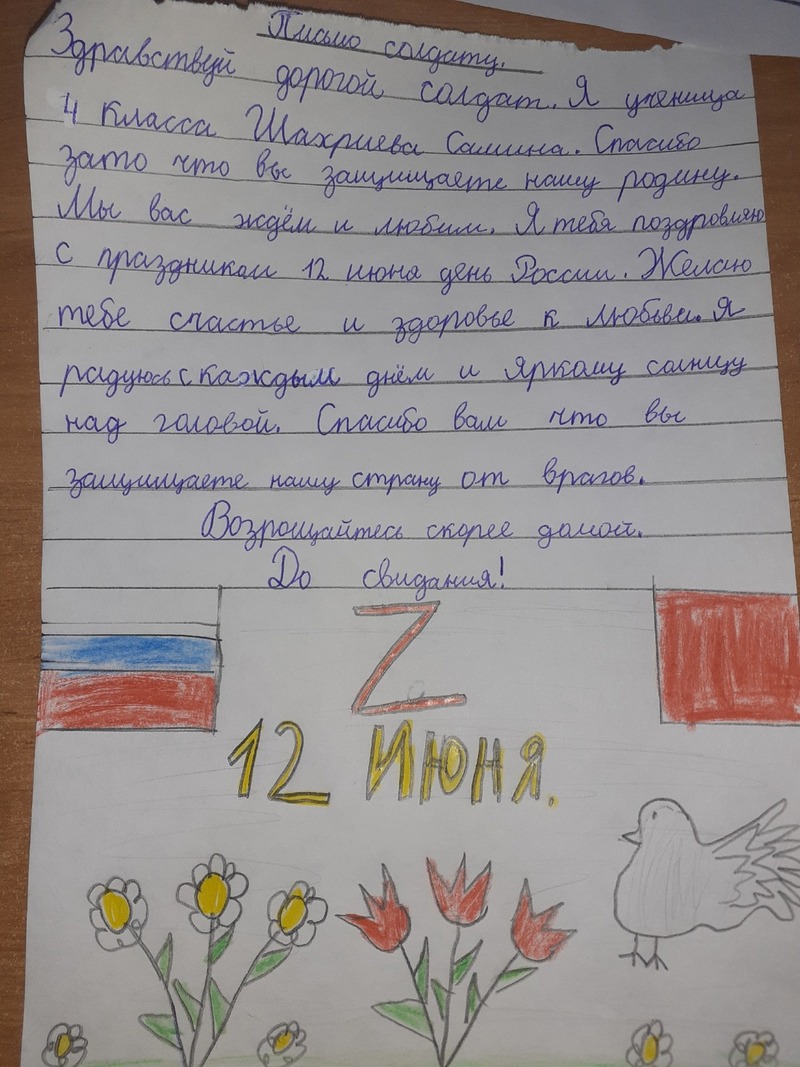 Письмо солдату.
Здравствуй дорогой солдат. Я ученица
4 класса Шахриева Самина. Спасибо
зато что вы защищаете нашу родину.
Мы вас ждём и любим. Я тебя поздровляю
с праздникам 12 июня день России. Желаю
тебе счастье и здоровье к любьви. Я
радуюсь с каждым днём и яркому солнцу
над головой. Спасибо вам что вы
защищаете нашу страну от врагов.
Возрощайтесь скорее домой.
До свидания!
Z
12 Июня.